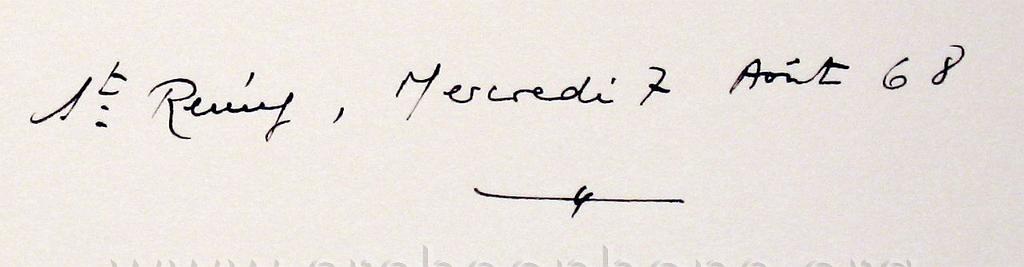 St Rémy, Mercredi 7 Août 68